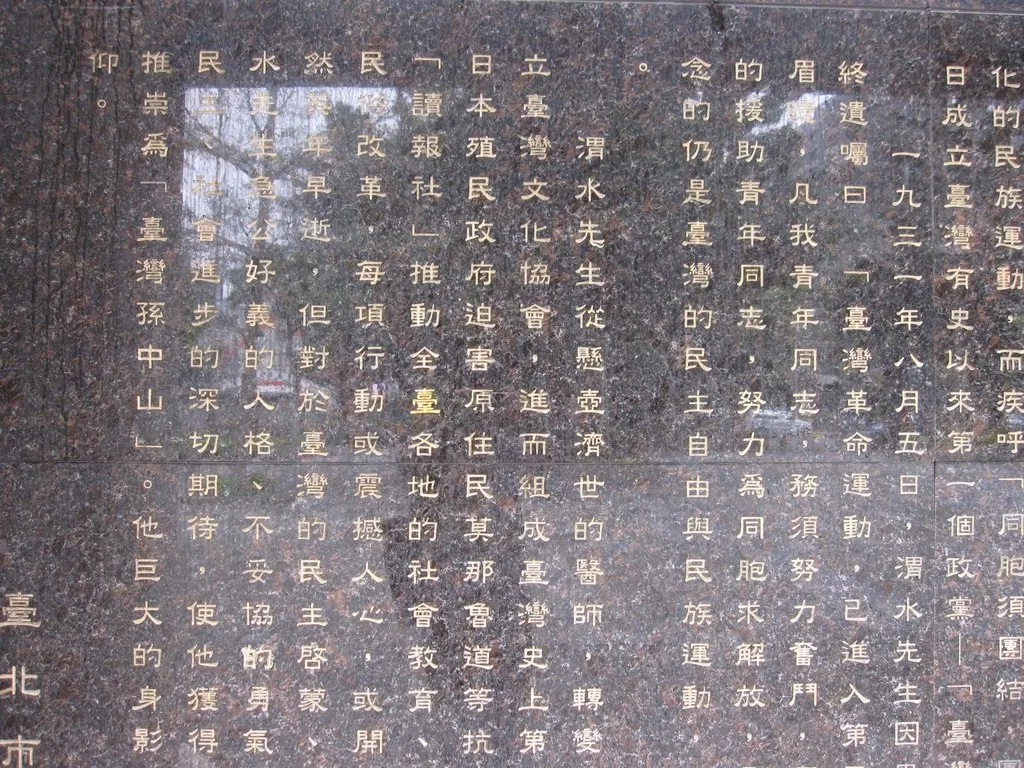 化的民族運動，而疾呼「同胞須團結，團
日成立臺灣有史以來第一個政黨—「臺灣
一九三一年八月五日，渭水先生因
終遺囑曰：「臺灣革命運動，已進入第
眉睫，凡我青年同志，務須努力奮鬥，
的援助青年同志，努力為同胞求解放，
念的仍是臺灣的民主自由與民族運動，
。
渭水先生從懸壺濟世的醫師，轉變
立臺灣文化協會，進而組成臺灣史上第
日本殖民政府迫害原住民莫那魯道等抗
「讀報社」推動全臺各地的社會教育、
民俗改革，每項行動或震撼人心，或開
然英年早逝，但對於臺灣的民主啓蒙、
水先生急公好義的人格、不妥協的勇氣
民主、社會進步的深切期待，使他獲得
推崇為「臺灣孫中山」。他巨大的身影
仰。
臺北市